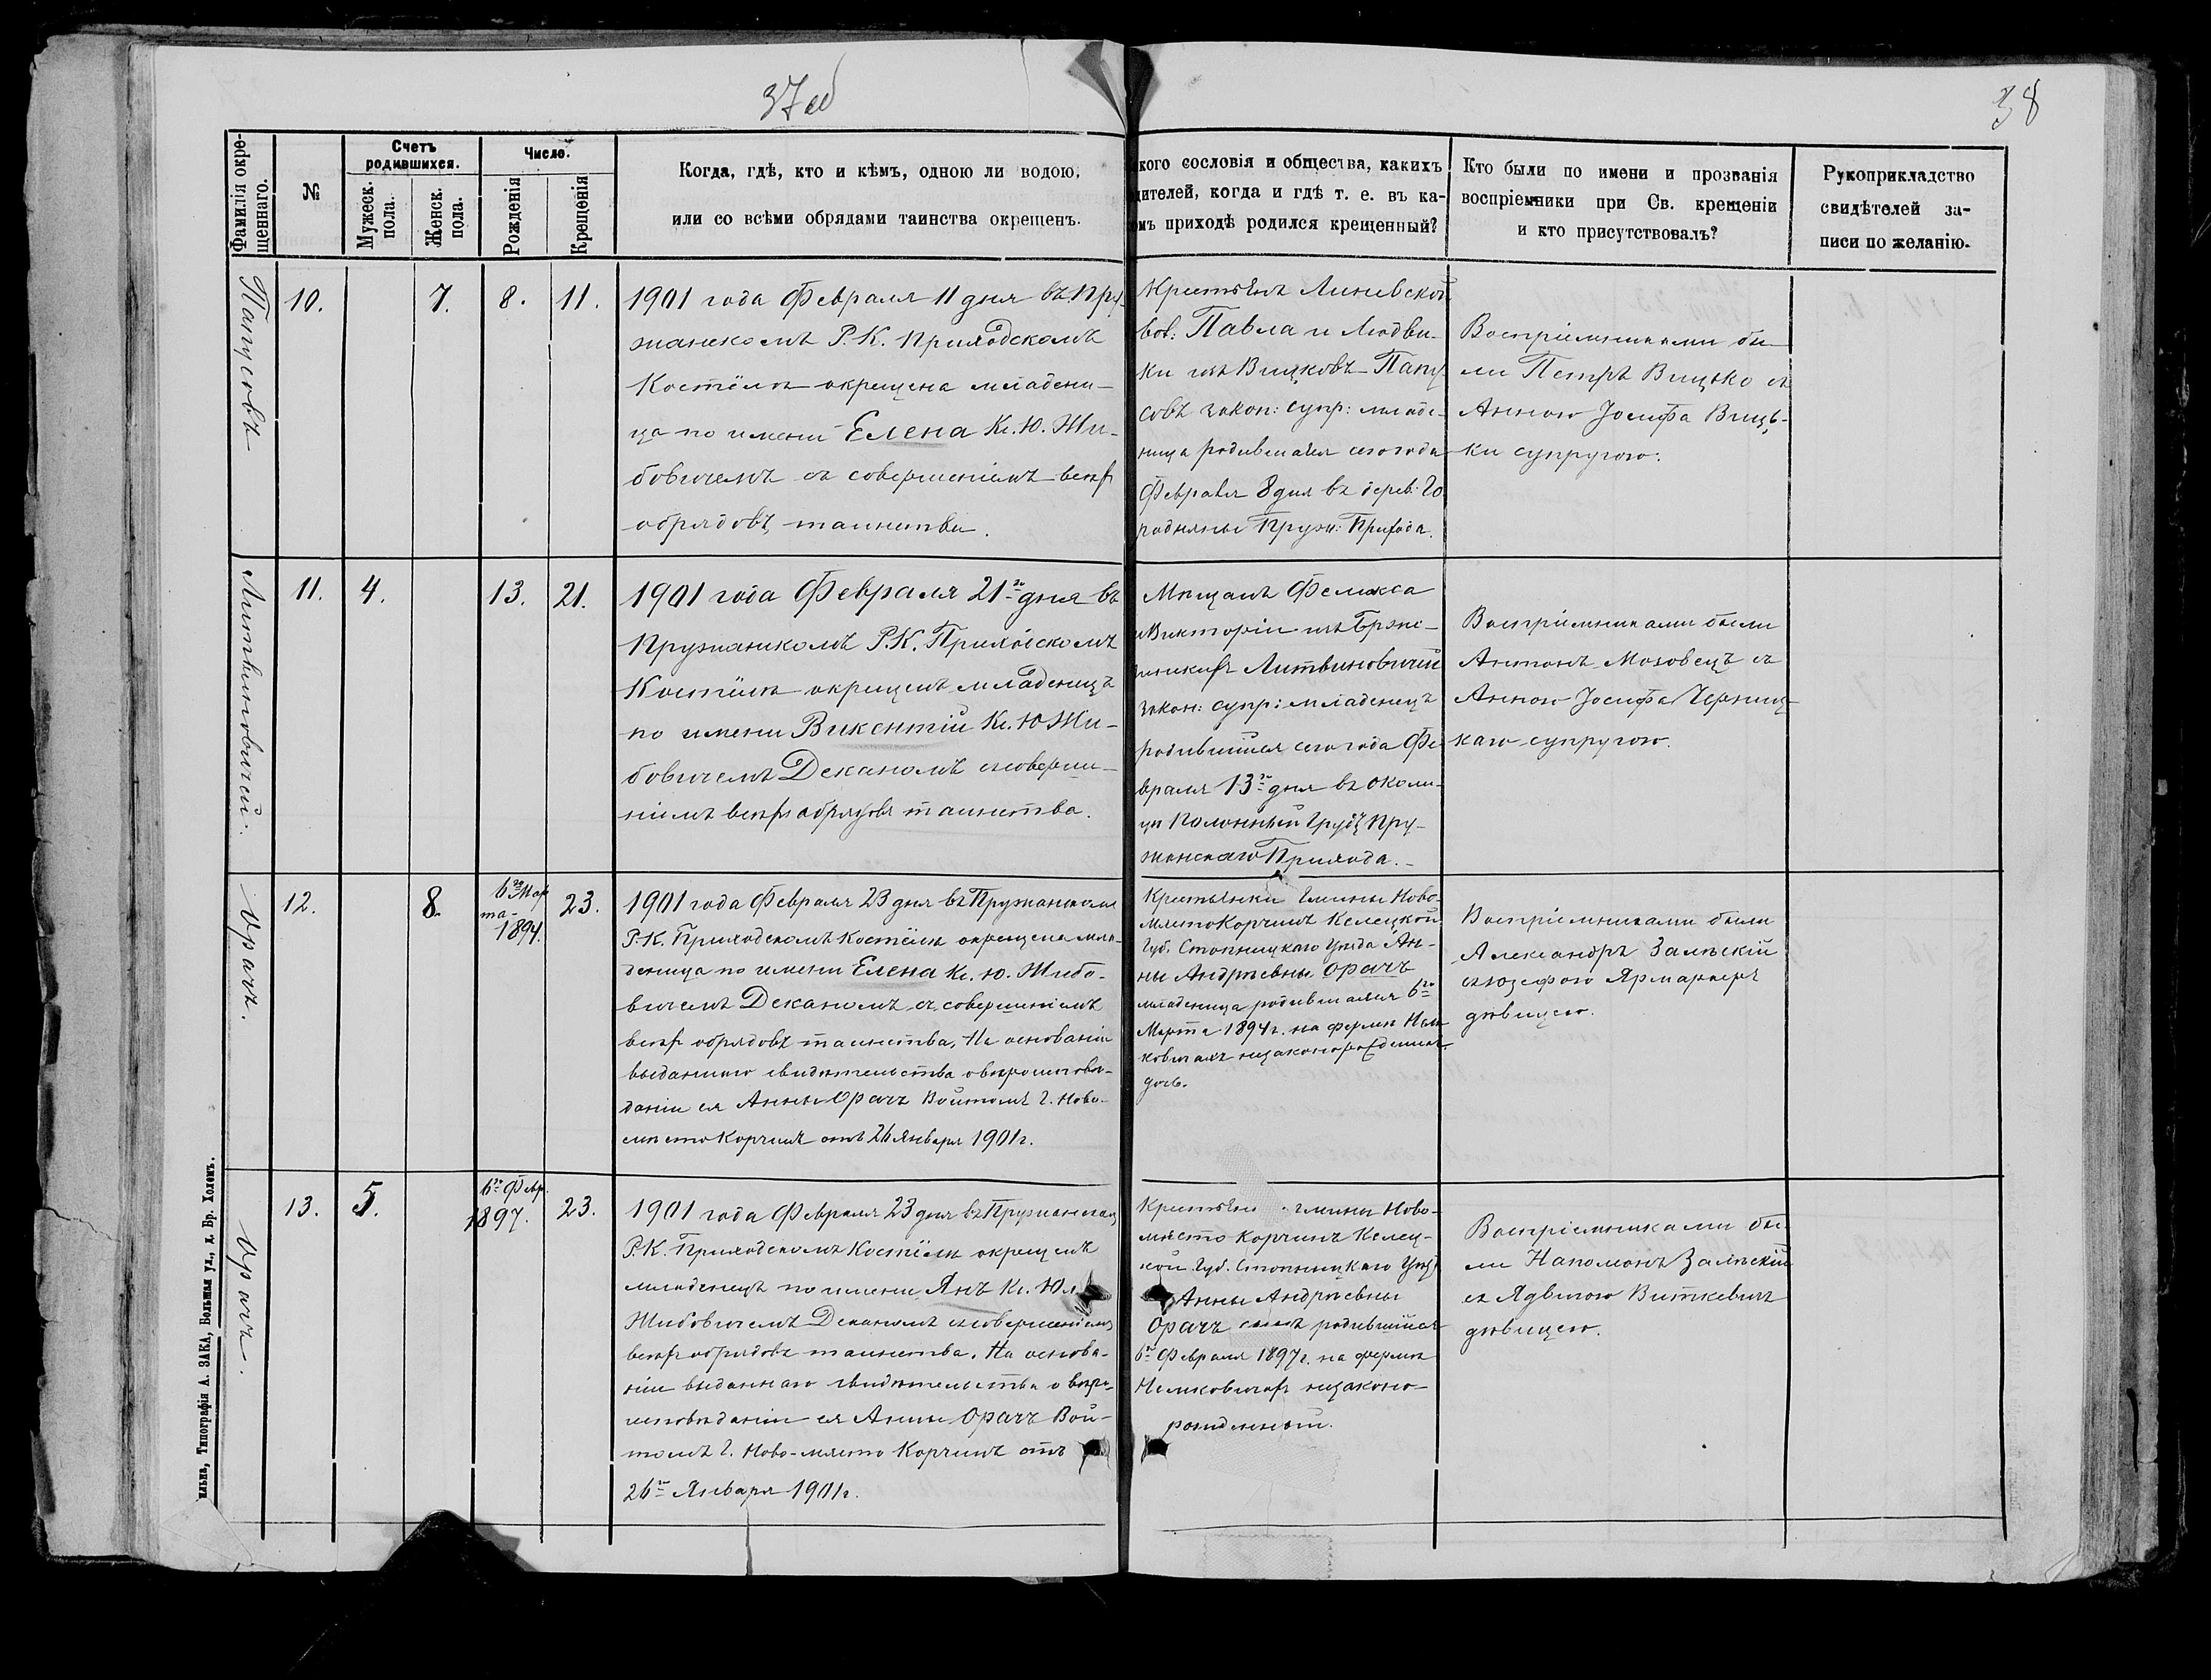 37 об
38
Фамилія окре-
щеннаго.
№
Счетъ
родившихся.
Мужеск.
пола.
Женск.
пола.
Число.
Рожденія
Крещенія
Когда, гдѣ, кто и кѣмъ, одною ли водою,
или со всѣми обрядами таинства окрещенъ.
кого сословія и общества, какихъ
дителей, когда и гдѣ т. е. въ ка-
мъ приходѣ родился крещенный?
Кто были по имени и прозванія
воспріемники при Св. крещеніи
и кто присутствовалъ?
Рукоприкладство
свидѣтелей за-
писи по желанію.
Папусовъ
10.
7.
8.
11.
1901 года Февраля 11 дня въ Пру-
жанскомъ Р.К. Приходскомъ
Костёлѣ окрещена младени-
ца по имени Елена Кс. Ю. Жи-
бовичемъ съ совершеніемъ всѣхъ
обрядовъ таинства.
Крестьянъ Линевской
вол: Павла и Людви-
ки изъ Вицковъ Папу-
совъ закон: супр: младе-
ница родившаяся сего года
Февраля 8 дня въ дерев: Го
родняны Пруж: Прихода.
Воспріемниками бы-
ли Петръ Вицько съ
Анною Іосифа Виць-
ки супругою.
Литвиновичей.
11.
4.
13.
21.
1901 года Февраля 21го дня въ
Пружанскомъ Р.К. Приходскомъ
Костёлѣ окрещенъ младенецъ
по имени Викентій Кс. Ю Жи-
бовичемъ Деканомъ съ соверше-
ніемъ всѣхъ обрядовъ таинства.
Мѣщанъ Феликса
и Викторіи изъ Брже-
Литвиновичей
закон: супр: младенецъ
родившійся сего года Фе-
враля 13го дня въ околи-
цѣ Полонный Грудъ Пру-
жанскаго Прихода.
Воспріемниками были
Антонъ Маховецъ съ
Анною Іосифа Черниц-
каго супругою.
Орачъ.
12.
8.
6го Мар
та-
1894.
23.
1901 года Февраля 23 дня въ Пружанскомъ
Р.К. Приходскомъ Костёлѣ окрещена мла-
деница по имени Елена Кс. Ю. Жибо-
вичемъ Деканомъ съ совершеніемъ
всѣхъ обрядовъ таинства, На основаніи
выданнаго свидѣтельства о вѣроисповѣ-
даніи ея Анны Орачъ Войтомъ г. Ново-
мѣсто Корчинъ отъ 26 Января 1901 г.
Крестьянки Гмины Ново-
мѣсто Корчинъ Келецкой
Губ. Стопницкаго Уѣзда Ан-
ны Андреевны Орачъ
младеница родившаяся 6го
Марта 1894 г. на фермѣ
незаконорожденная
дочь.
Воспріемниками были
Александръ Залѣскій
съ Юзефою Ярмаркеръ
дѣвицею.
Орачъ.
13.
5.
6го Февр.
1897.
23.
1901 года Февраля 23 дня въ Пружанскомъ
Р.К. Приходскомъ Костёлѣ окрещенъ
младенецъ по имени Янъ Кс. Юл
Жибовичемъ Деканомъ съ совершеніемъ
всѣхъ обрядовъ таинства. На основа-
ніи выданнаго свидѣтельства о вѣро-
исповѣданіи ея Анны Орачъ Вой-
томъ г. Ново-мѣсто Корчинъ отъ
26го Января 1901 г.
Крестьян гмины Ново-
мѣсто Корчинъ Келец-
кой Губ. Стопницкаго Уѣзд
Анны Андреевны
Орачъ сынъ родившійся
6го Февраля 1897 г. на фермѣ
незаконо-
рожденный.
Воспріемниками бы-
ли Напомонъ Залѣскій
съ Ядвигою Виткевичъ
дѣвицею.
ильна, Типографія А. ЗАКА, Вольшая ул., д. Бр. Холемъ.